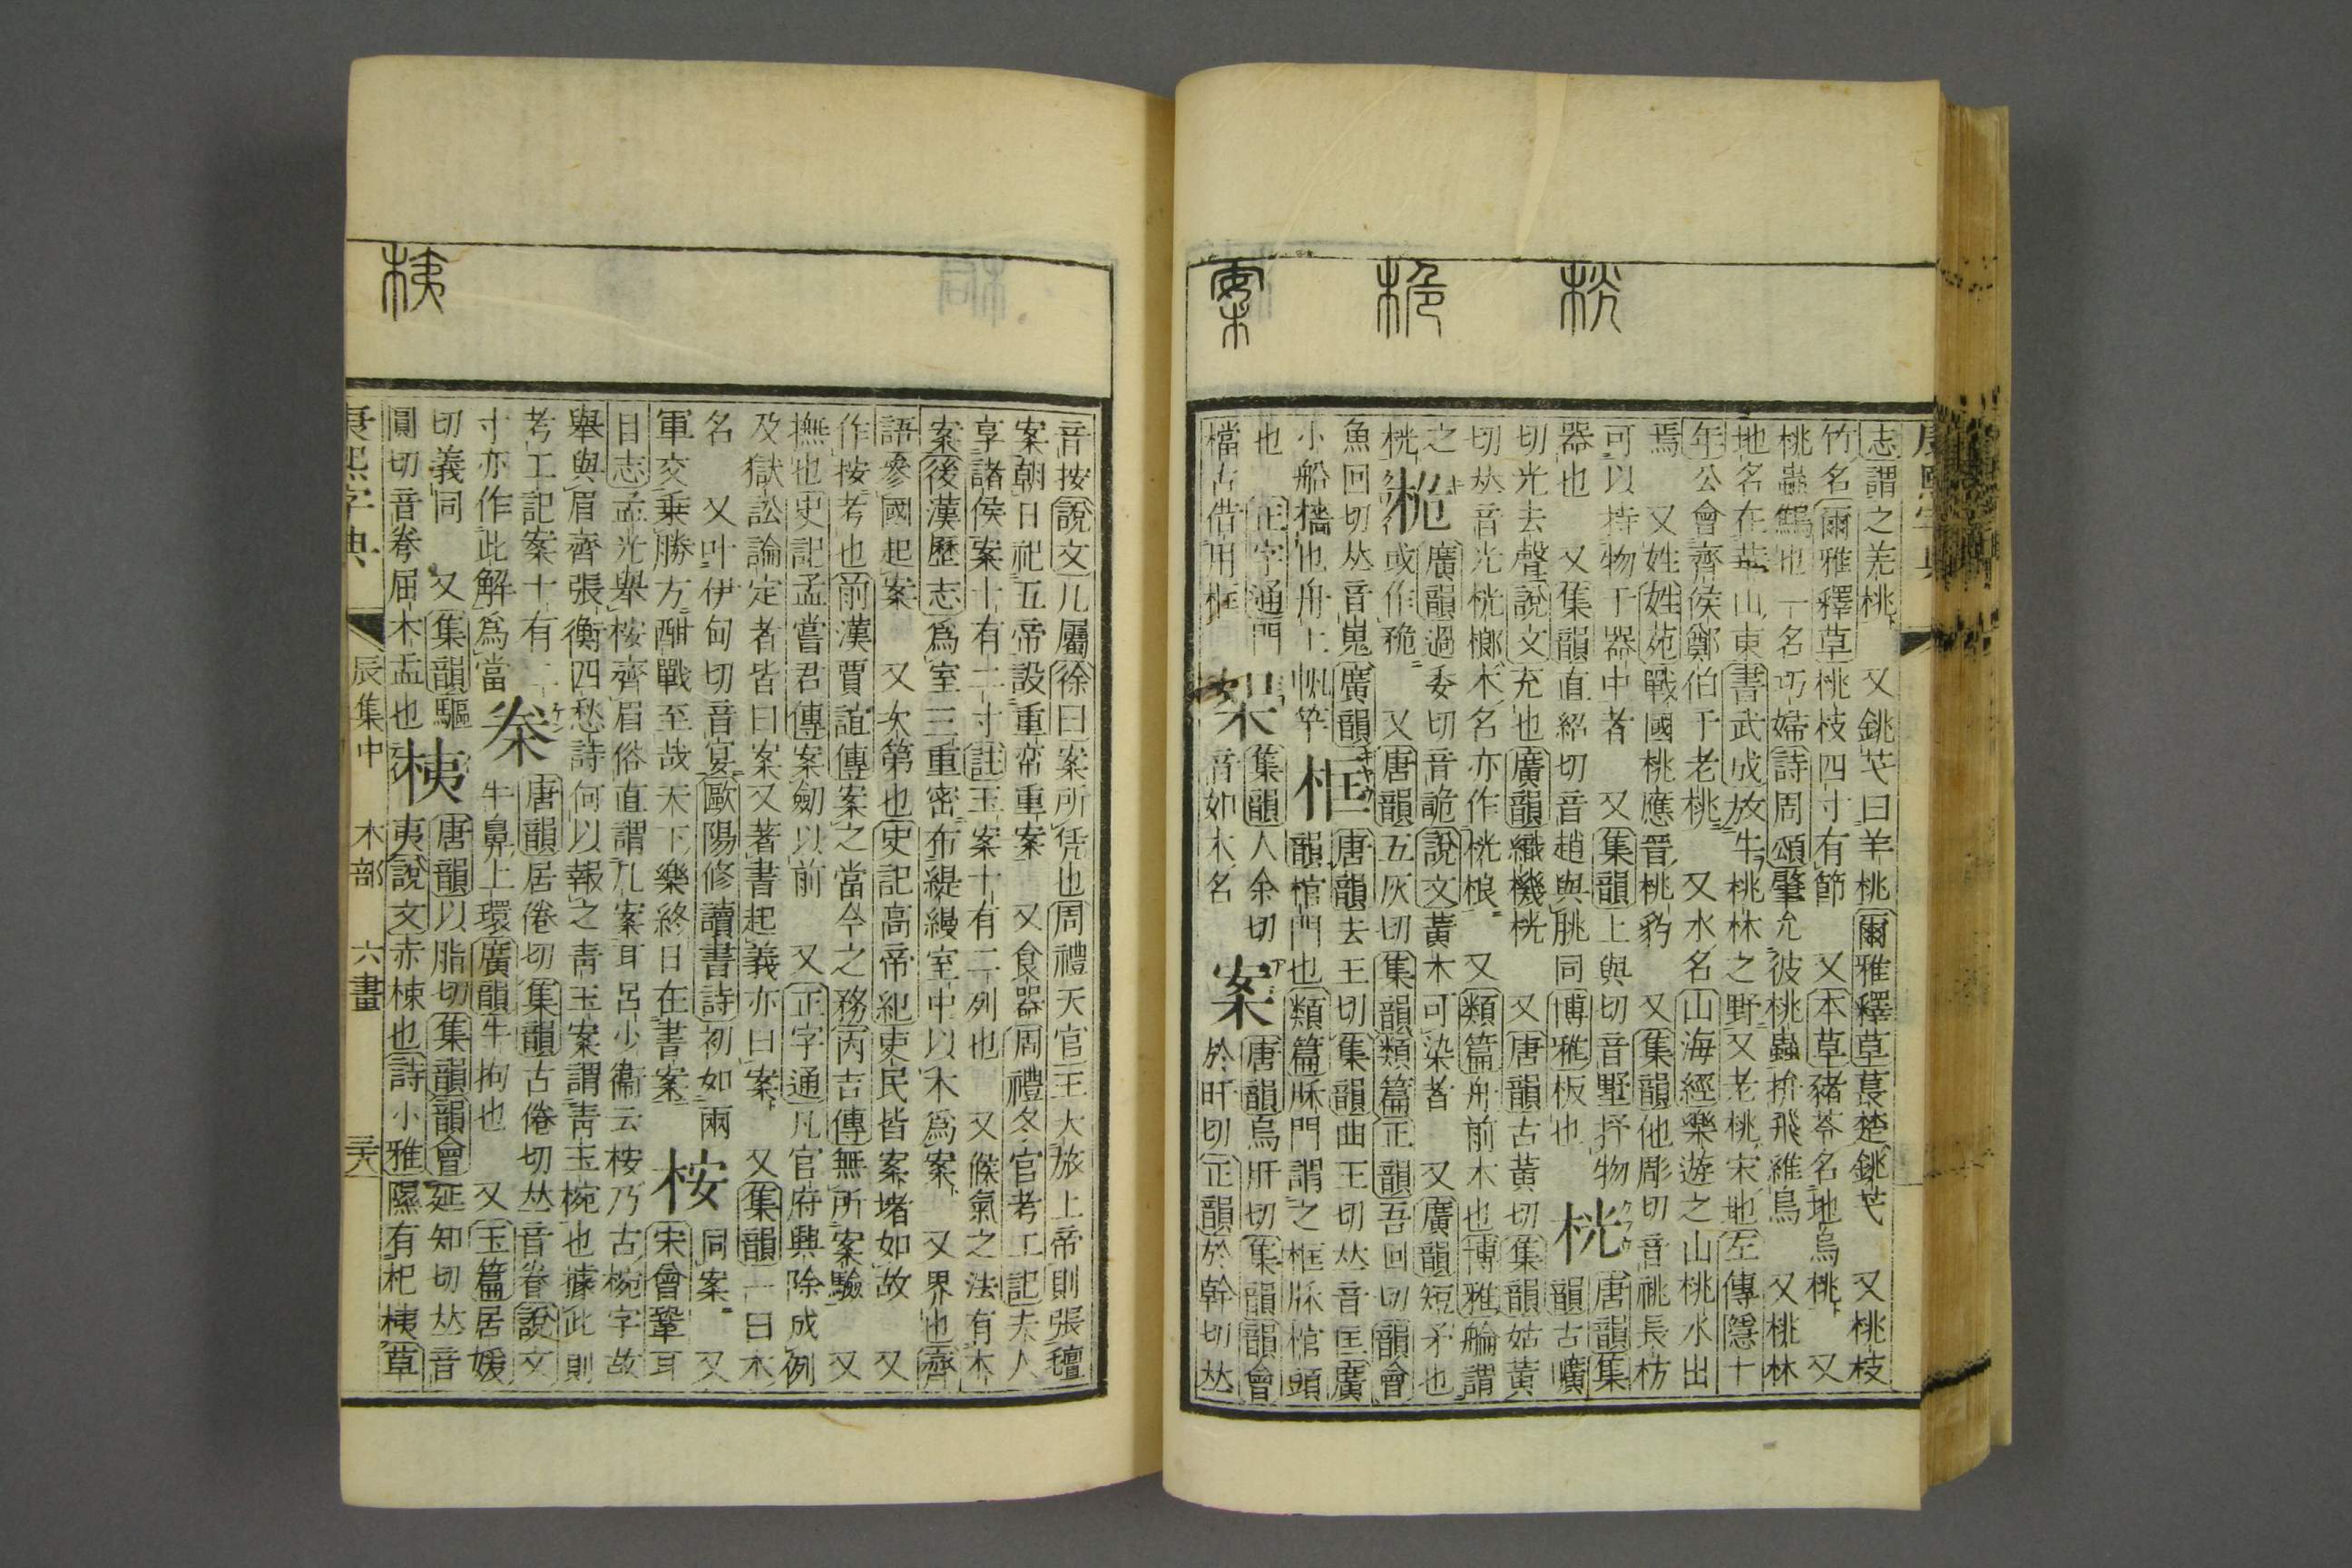 桄 桅 案
康熙字典
志謂之羌桃 又銚芅曰羊桃爾雅釋草萇楚銚芅 又桃枝
竹名爾雅釋草桃枝四寸有節 又本草豬苓名地烏桃 又
桃蟲鷦也一名巧婦詩周頌肇允彼桃蟲拚飛維鳥 又桃林
地名在華山東書武成放牛桃林之野又老桃宋地左傳隱十
年公會齊侯鄭伯于老桃 又水名山海經樂遊之山桃水出
焉 又姓姓苑戰國桃應晉桃豹 又集韻他彫切音祧長枋
可以持物于器中者 又集韻上與切音墅抒物
器也 又集韻直紹切音趙與朓同博雅板也 桄 唐韻集韻古曠
切光去聲說文充也廣韻織機桄 又唐韻古黃切集韻姑黃
切𠀤音光桄榔木名亦作桄桹 又類篇舟前木也博雅艑謂
之桄 桅 廣韻過委切音詭說文黃木可染者 又廣韻短矛也
或作䂫 又唐韻五灰切集韻類篇正韻吾回切韻會
魚回切𠀤音嵬廣韻小船檣也舟上帆竿
框 唐韻去王切集韻曲王切𠀤音匡廣韻棺門也類篇牀門謂之框牀棺頭
也 正字通門檔古借用框
桇 集韻人余切音如木名
案 唐韻烏旰切集韻韻會於旰切正韻於幹切𠀤
桋
音按說文几屬徐曰案所凭也周禮天官王大旅上帝則張氊
案朝日祀五帝設重帟重案 又食器周禮冬官考工記夫人
享諸侯案十有二寸註玉案十有二列也 又候氣之法有木
案後漢歷志爲室三重密布緹縵室中以木爲案 又界也齊
語參國起案 又次第也史記高帝紀吏民皆案堵如故 又
作按考也前漢賈誼傳案之當今之務丙吉傳無所案驗 又
撫也史記孟嘗君傳案劒以前 又正字通凡官府興除成例
及獄訟論定者皆曰案又著書起義亦曰案 又集韻一曰木
名 又叶伊甸切音宴歐陽修讀書詩初如兩
軍交乘勝方酣戰至哉天下樂終日在書案 桉 同案 又
宋會鞏耳目志孟光舉桉齊眉俗直謂几案耳呂少衞云桉乃古椀字故
舉與眉齊張衡四愁詩何以報之靑玉案謂靑玉椀也據此則
考工記案十有二寸亦作此解爲當
桊 唐韻居倦切集韻古倦切𠀤音眷說文牛鼻上環廣韻牛拘也 又玉篇居媛
切義同 又集韻驅圓切音拳屈木盂也
桋 唐韻以脂切集韻韻會延知切𠀤音夷說文赤楝也詩小雅隰有杞桋草
康熙字典 辰集中 木部 六畫 三六